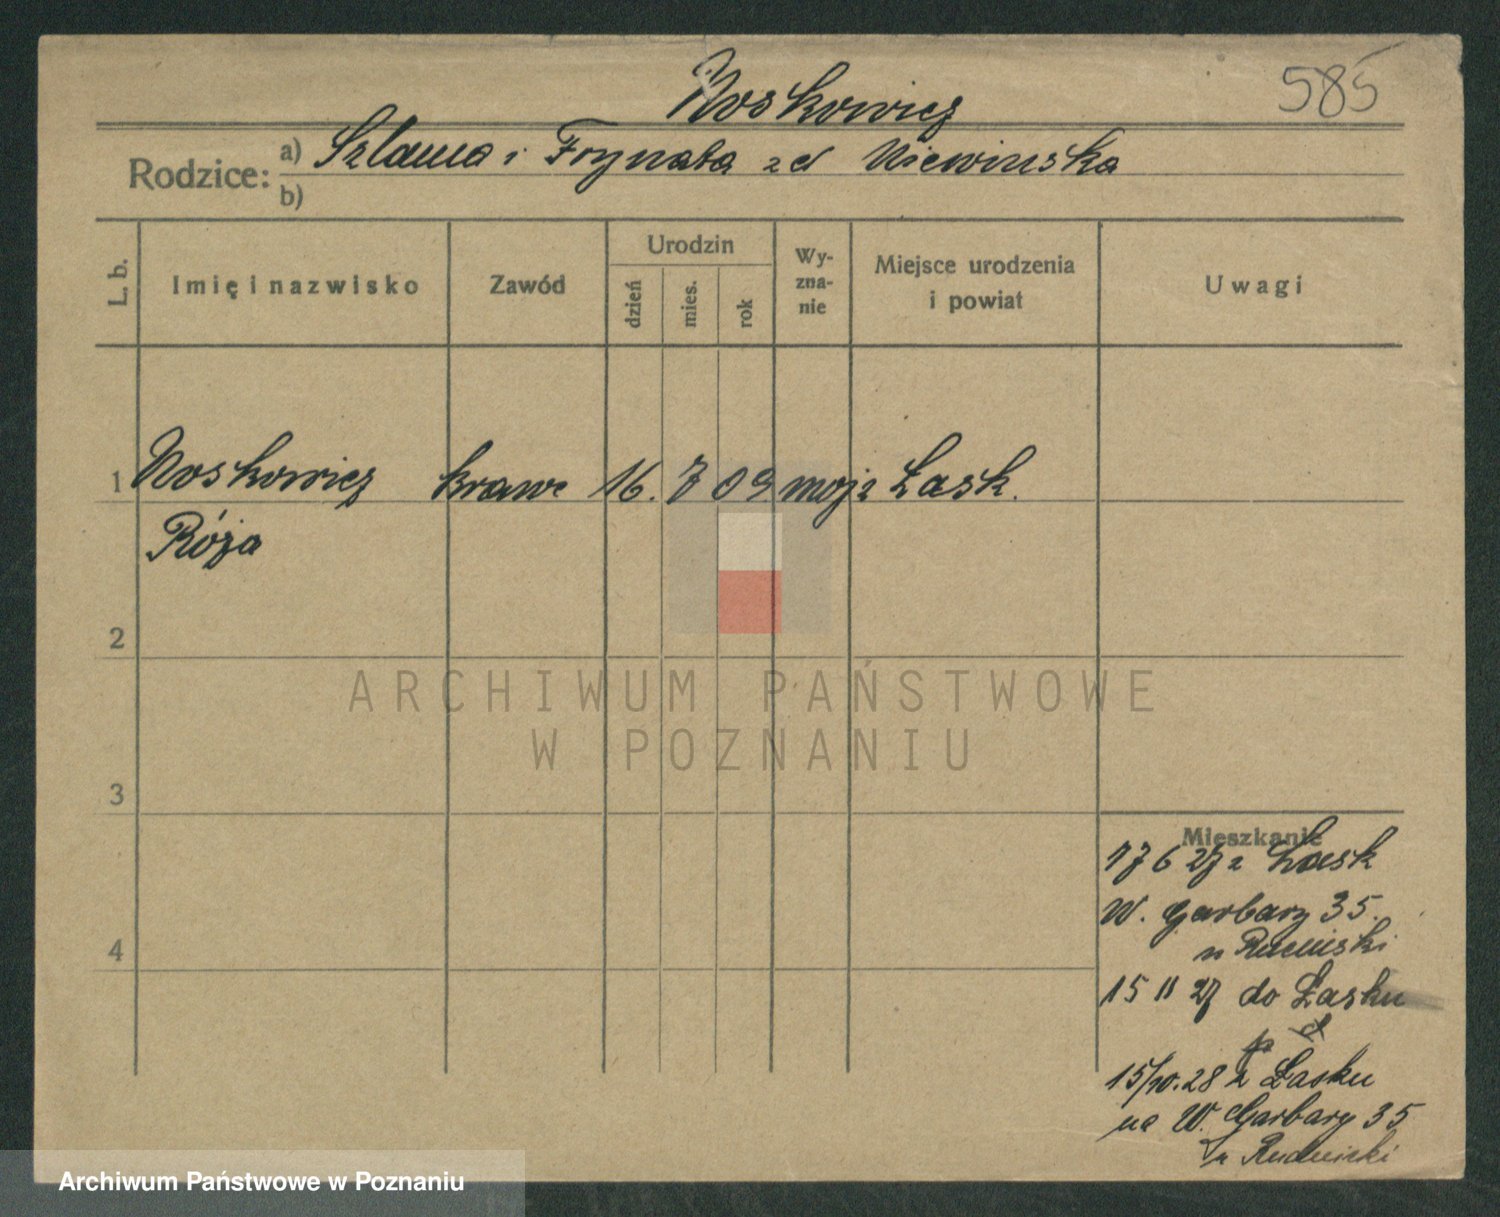 585
Noskowicz
Rodzice:
a) Szlama i Frynata zd Niewińska
b)
L. b.
Imię i nazwisko
Zawód
Urodzin
dzień
mies.
rok
Wy-
zna-
nie
Miejsce urodzenia
i powiat
Uwagi
1 Noskowicz krawc 16. 7 09 mojż Łask.
Róża
2
3
4
ARCHIWUM PAŃSTWOWE
W POZNANIU
Mieszkanie
17 6 27 z Łask
W. Garbary 35.
u Rudnicki
15 11 27 do Łasku
15/10.28 z Łasku
na W. Garbary 35
u Rudnicki
Archiwum Państwowe w Poznaniu